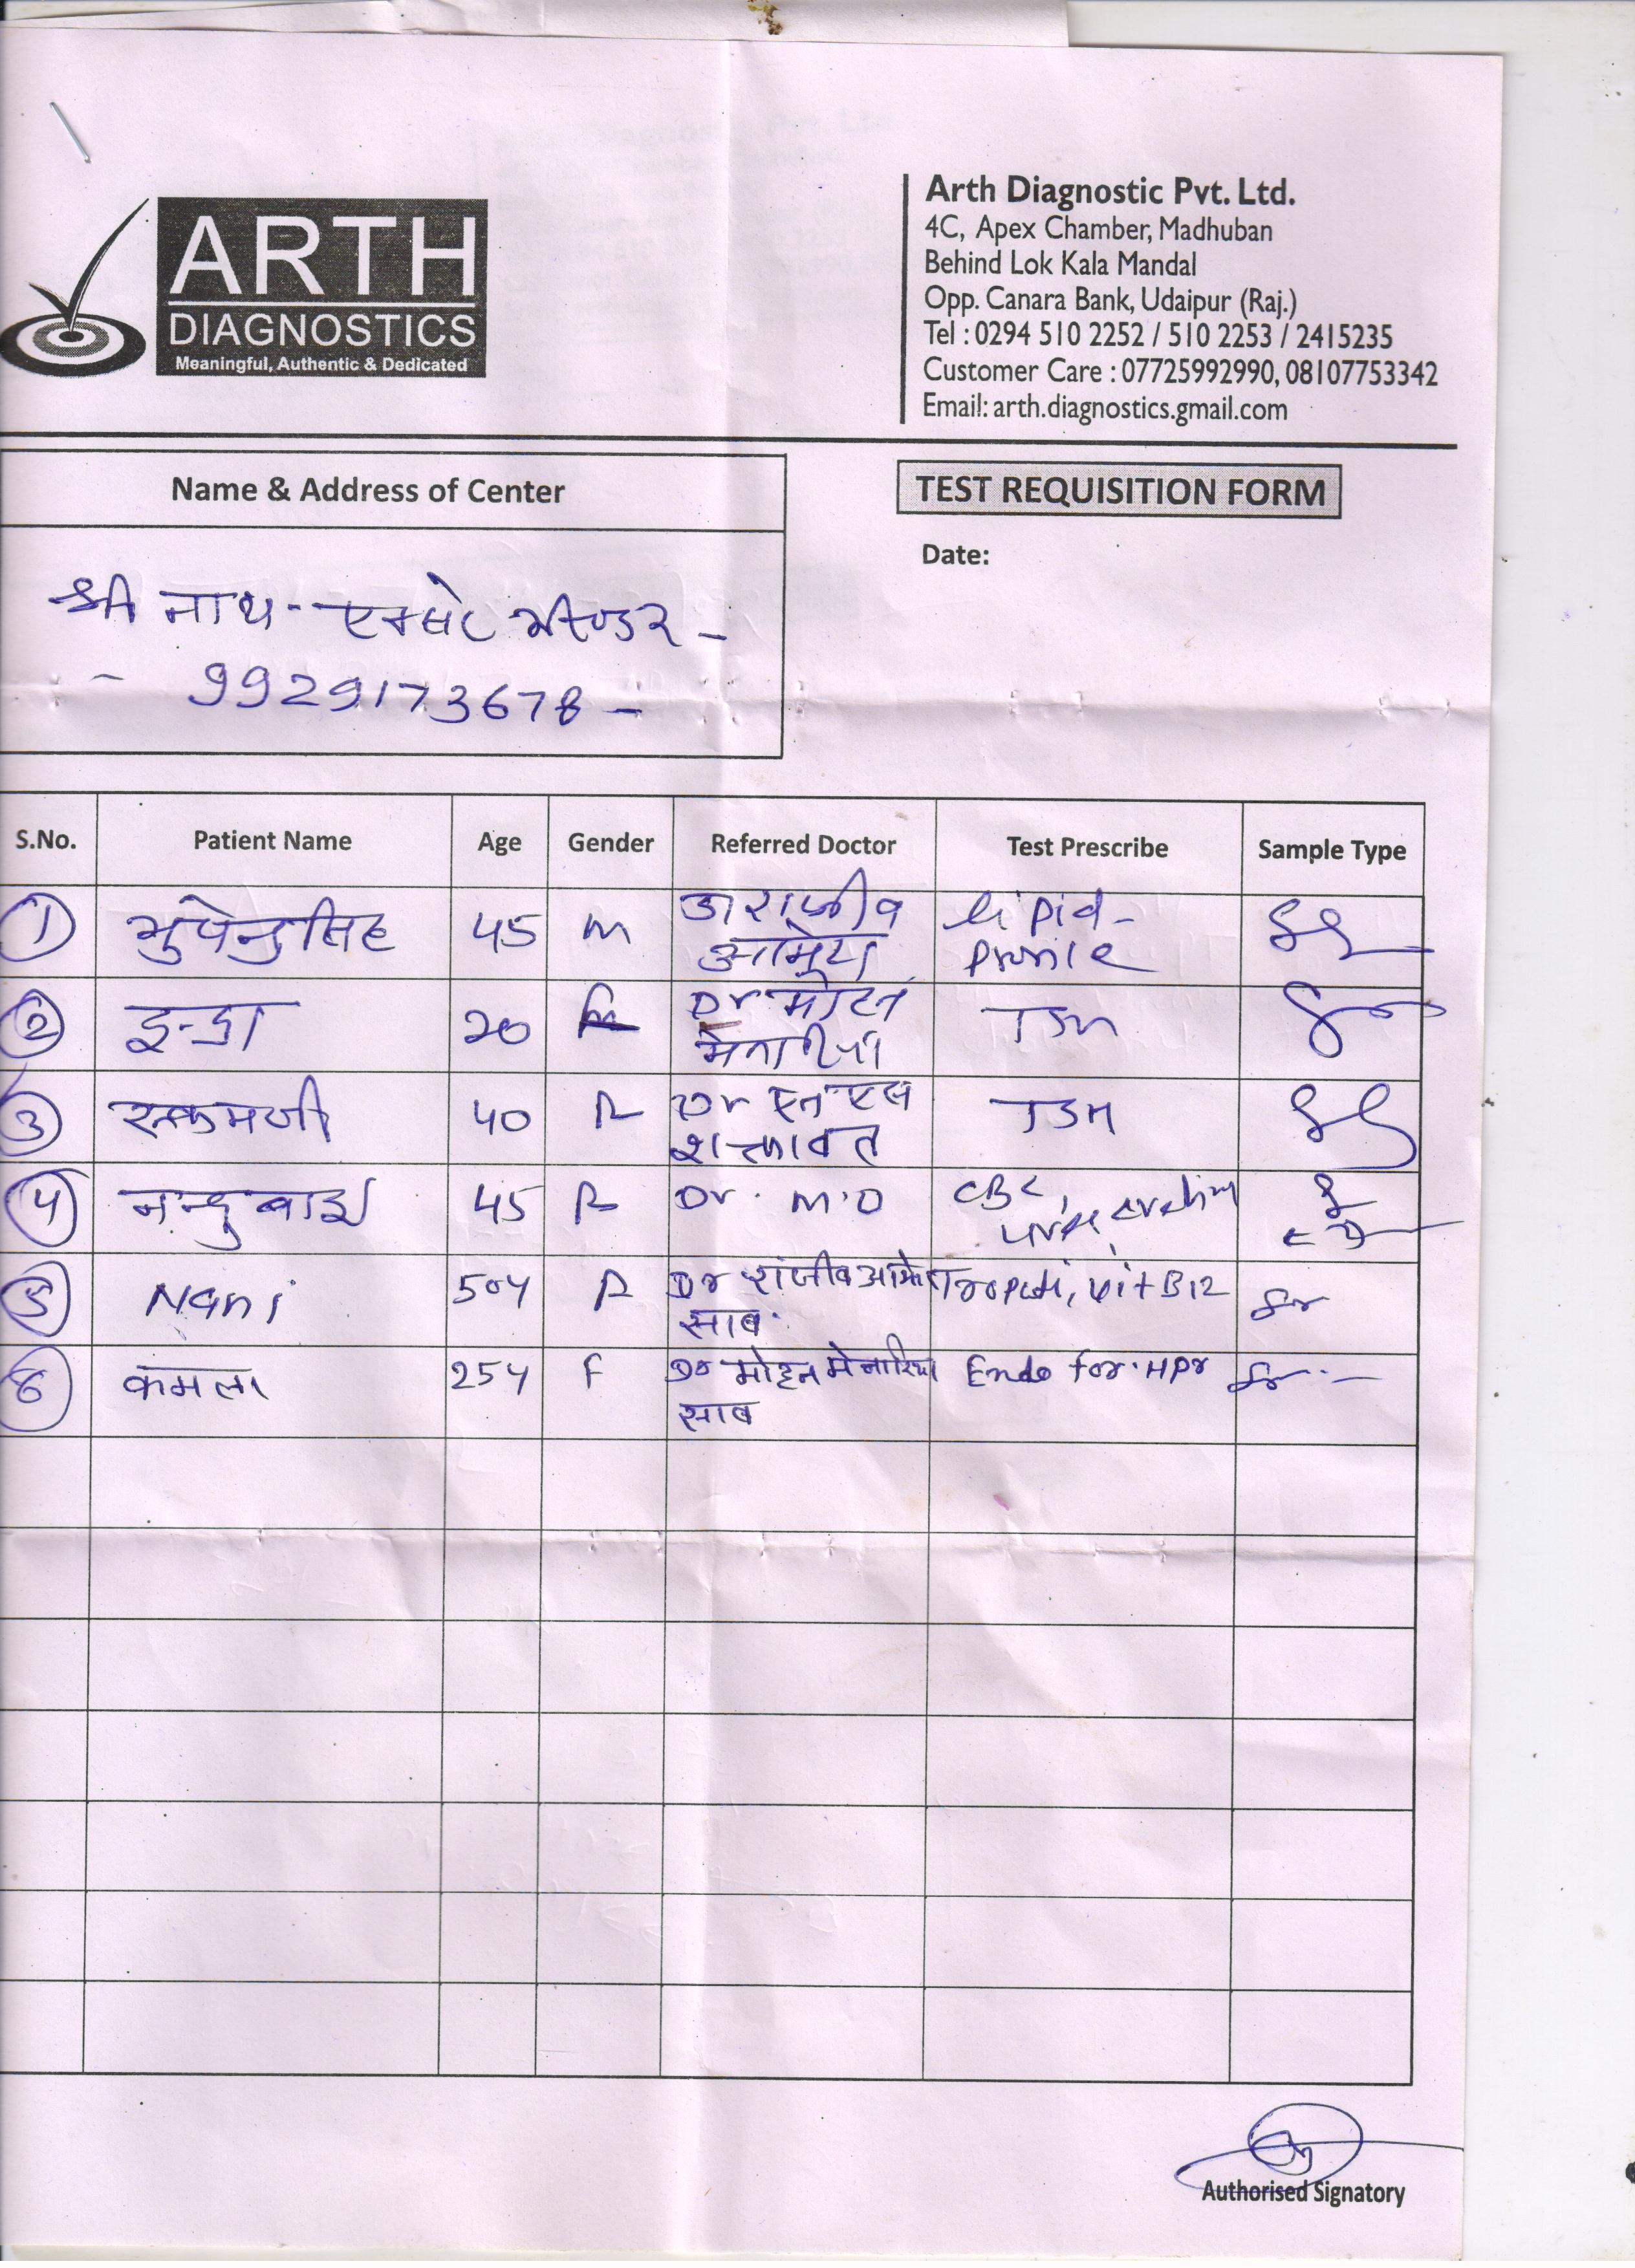 ARTH
DIAGNOSTICS
Meaningful, Authentic & Dedicated
Arth Diagnostic Pvt. Ltd.
4C, Apex Chamber, Madhuban
Behind Lok Kala Mandal
Opp. Canara Bank, Udaipur (Raj.)
Tel : 0294 510 2252 / 510 2253 / 2415235
Customer Care : 07725992990, 08107753342
Email: arth.diagnostics.gmail.com
Name & Address of Center
TEST REQUISITION FORM
Date:
श्री नाथ-
- 9929173678 -
S.No. Patient Name Age Gender Referred Doctor Test Prescribe Sample Type
1 45 m lipid-
2 इन्द्रा 20 Dr मोहन TSH
मेनारिया
3 40 Dr एन एस TSH
शक्तावत
4 नन्दु बाई 45 Dr. M.O CBC,
5 Nani 50Y Dr vit B12
साब
6 कमला 25Y F Dr मोहन मेनारिया Endo for HPR
साब
Authorised Signatory